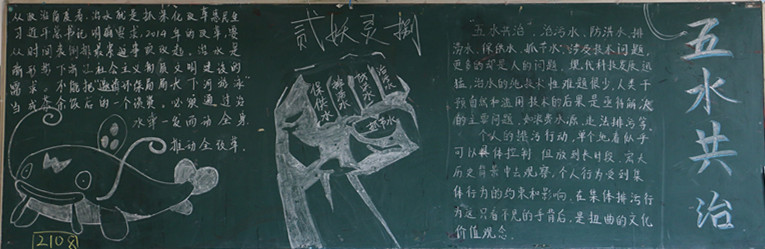 从政治角度看，治水就是抓深化改革惠民生
习近平总书记明确要求，2014年的改革，要
从时间表倒排最急迫事项改起，治水是
新形势下
社会主义
文明建设的
需求。不能把"邀请环保局局长下河游泳"
当成茶余饭后的一个谈资。必须通过治
水牵一发而动全身
推动全改革
2108
贰妖灵捌
保供水
排涝水
防洪水
治污水
抓节水
"五水共治"，治污水、防洪水、排
涝水、保供水、抓节水，涉及技术问题，
更多的却是人的问题，现代科技发展迅
猛，治水的纯技术性难题很少，人类干
预自然和滥用技术的后果是亟待解决
的主要问题，如浪费水源，违法排污等。
个人的排污行动，单个地看似乎
可以具体控制 但放到长时段、宏大
历史背景中去观察，个人行为受到集
体行为的约束和影响。在集体排污行
为这只看不见的手背后，是扭曲的文化
价值观念。
五水共治